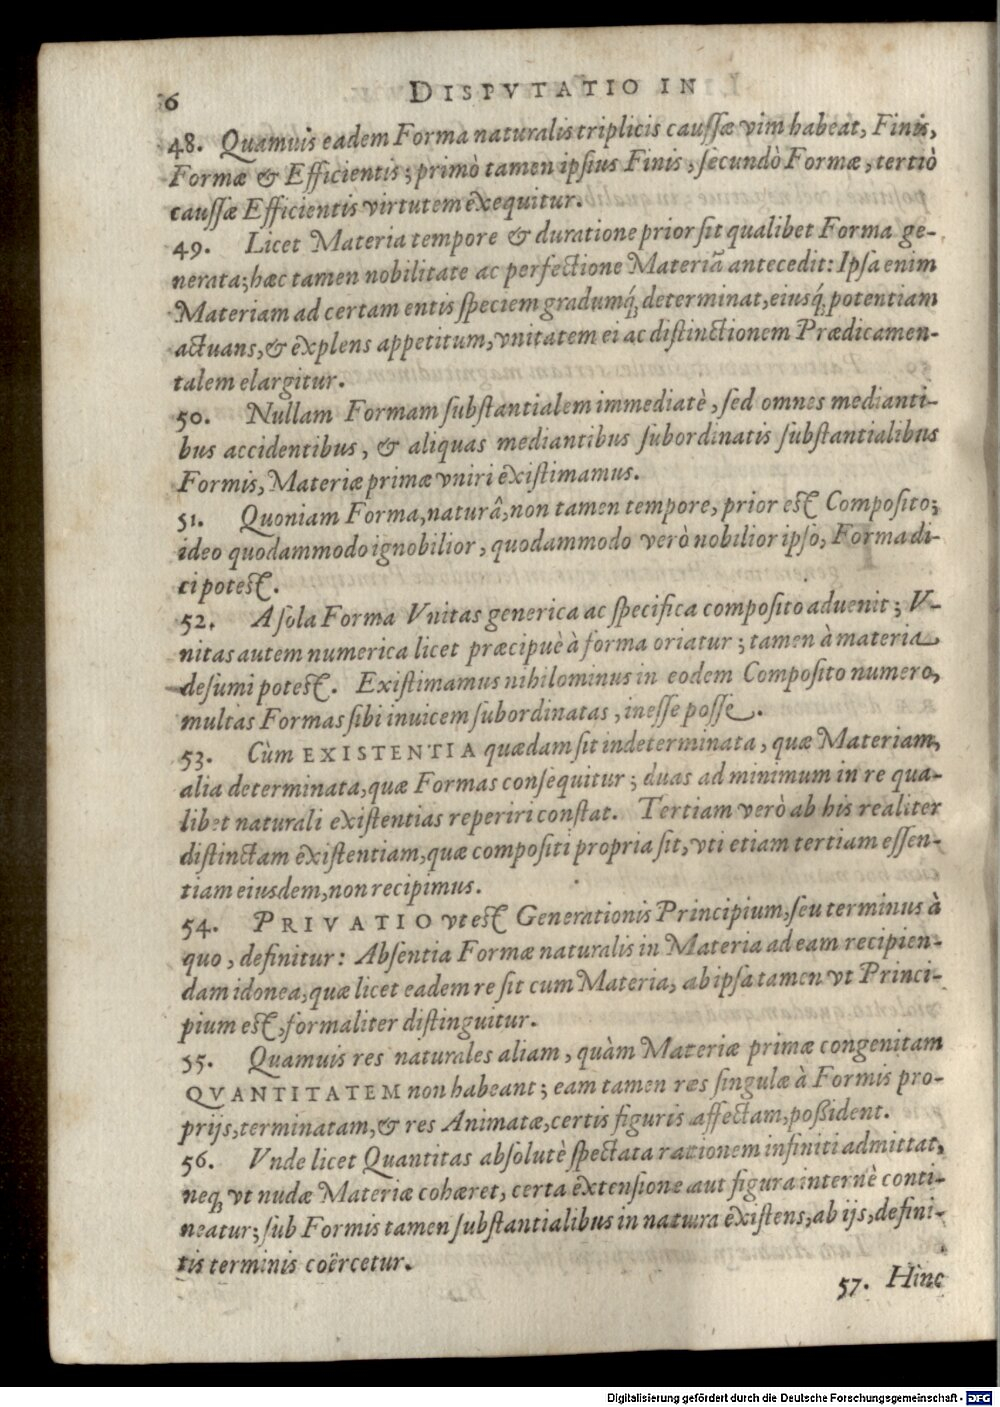 6 DISPVTATIO IN
48. Quamuis eadem Forma naturalis triplicis caussæ vim habeat, Finis,
Formæ & Efficientis; primò tamen ipsius Finis, secundò Formæ, tertiò
caussæ Efficientis virtutem exequitur.
49. Licet Materia tempore & duratione prior sit qualibet Forma ge-
nerata; hæc tamen nobilitate ac perfectione Materiā antecedit: Ipsa enim
Materiam ad certam entis speciem gradumq́; determinat, eiusq́; potentiam
actuans, & explens appetitum, vnitatem ei ac distinctionem Prædicamen-
talem elargitur.
50. Nullam Formam substantialem immediatè, sed omnes medianti-
bus accidentibus, & aliquas mediantibus subordinatis substantialibus
Formis, Materiæ primæ vniri existimamus.
51. Quoniam Forma, naturâ, non tamen tempore, prior est Composito;
ideo quodammodo ignobilior, quodammodo verò nobilior ipso, Forma di-
ci potest.
52. A sola Forma Vnitas generica ac specifica composito aduenit; V-
nitas autem numerica licet præcipuè à forma oriatur; tamen à materia
desumi potest. Existimamus nihilominus in eodem Composito numero,
multas Formas sibi inuicem subordinatas, inesse posse.
53. Cùm EXISTENTIA quædam sit indeterminata, quæ Materiam,
alia determinata, quæ Formas consequitur; duas ad minimum in re qua-
libet naturali existentias reperiri constat. Tertiam verò ab his realiter
distinctam existentiam, quæ compositi propria sit, vti etiam tertiam essen-
tiam eiusdem, non recipimus.
54. PRIVATIO vt est Generationis Principium, seu terminus à
quo, definitur: Absentia Formæ naturalis in Materia ad eam recipien-
dam idonea, quæ licet eadem re sit cum Materia, ab ipsa tamen vt Princi-
pium est, formaliter distinguitur.
55. Quamuis res naturales aliam, quàm Materiæ primæ congenitam
QVANTITATEM non habeant; eam tamen res singulæ à Formis pro-
prijs, terminatam, & res Animatæ, certis figuris affectam, poßident.
56. Vnde licet Quantitas absolutè spectata rationem infiniti admittat,
neq; vt nudæ Materiæ cohæret, certa extensione aut figura internè conti-
neatur; sub Formis tamen substantialibus in natura existens, ab ijs, defini-
tis terminis coërcetur.
57. Hinc
Digitalisierung gefördert durch die Deutsche Forschungsgemeinschaft - DFG